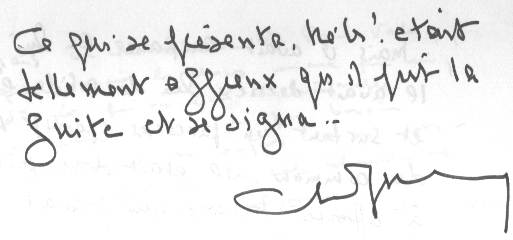 Ce qui se présenta, hélas! était
tellement affreux qu'il prit la
fuite et se signa...